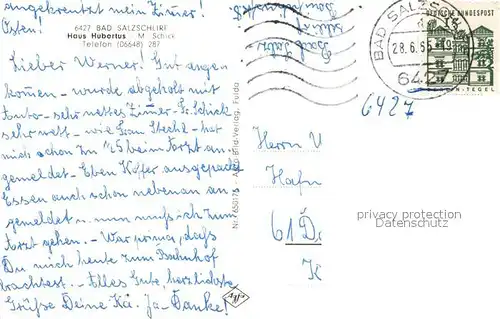 angekreuzt mein Zimer!
Osten!
6427 BAD SALZSCHLIRF
Haus Hubertus M. Schick
Telefon (06648) 287
Lieber Werner! Gut ange
komen - wurde abgeholt mit
Auto - sehr nettes Zimer - Fr. Schick
sehr nett - wie Frau Stechl - hat
mich schon zm 1/2 5 beim Arzt an-
gemeldet - Eben Koffer ausgepackt
Essen auch schon nebenan an
gemeldet u. nun muß ich zum
Arzt gehen. - War prima, daß
Du mich heute zum Bahnhof
brachtest. - Alles Gute, herzlichste
Grüße Deine Kä. Ja - Danke!
Bad Salz
BAD SALZ
28.6.65-19
6427
DEUTSCHE BUNDESPOST
BERLIN-TEGEL
6427
Herrn W
Hafn
61 D
privacy protection
Datenschutz
Bild-Verlag, Fulda
Afu